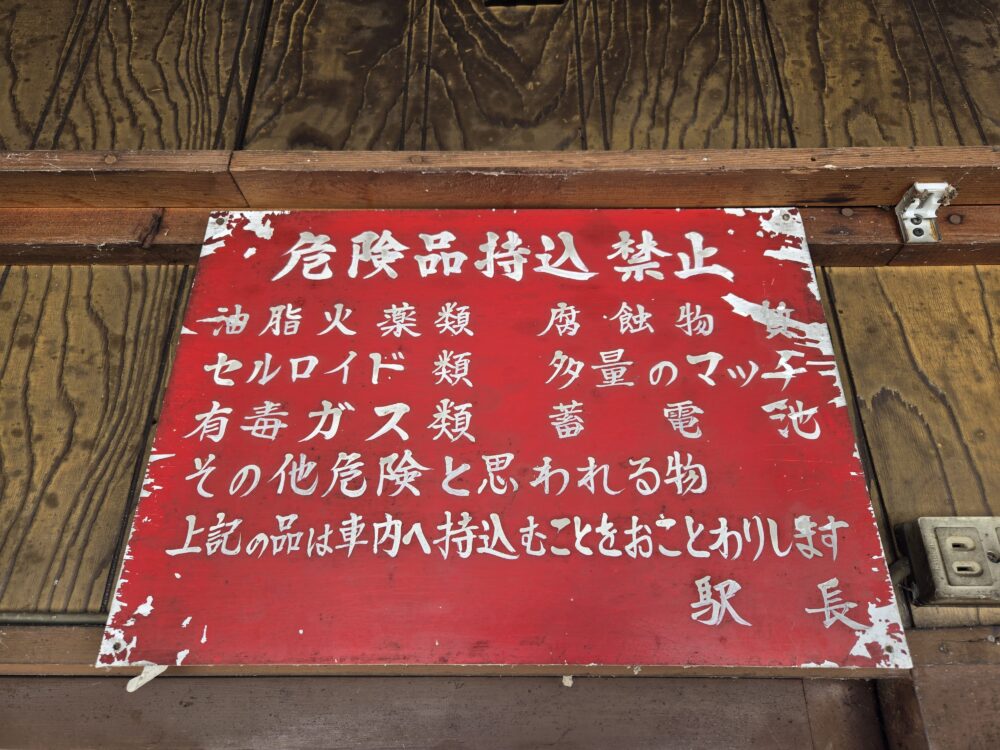 危険品持込禁止
油脂火薬類 腐蝕物質
セルロイド類 多量のマッチ
有毒ガス類 蓄電池
その他危険と思われる物
上記の品は車内へ持込むことをおことわりします
駅長